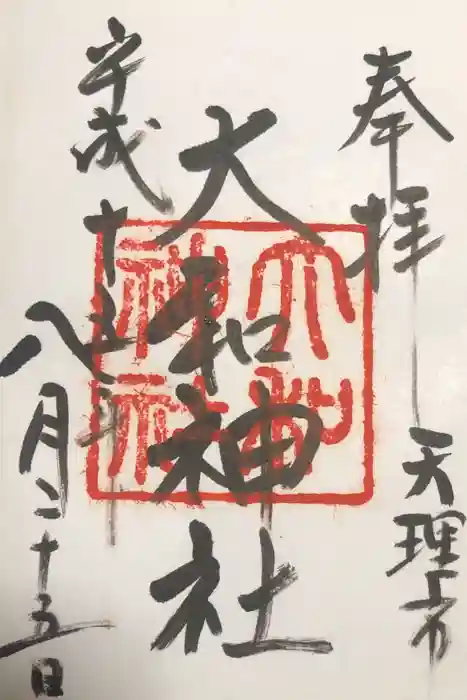 奉拝
天理市
大和神社
平成十五年
八月二十五日
大和
神社